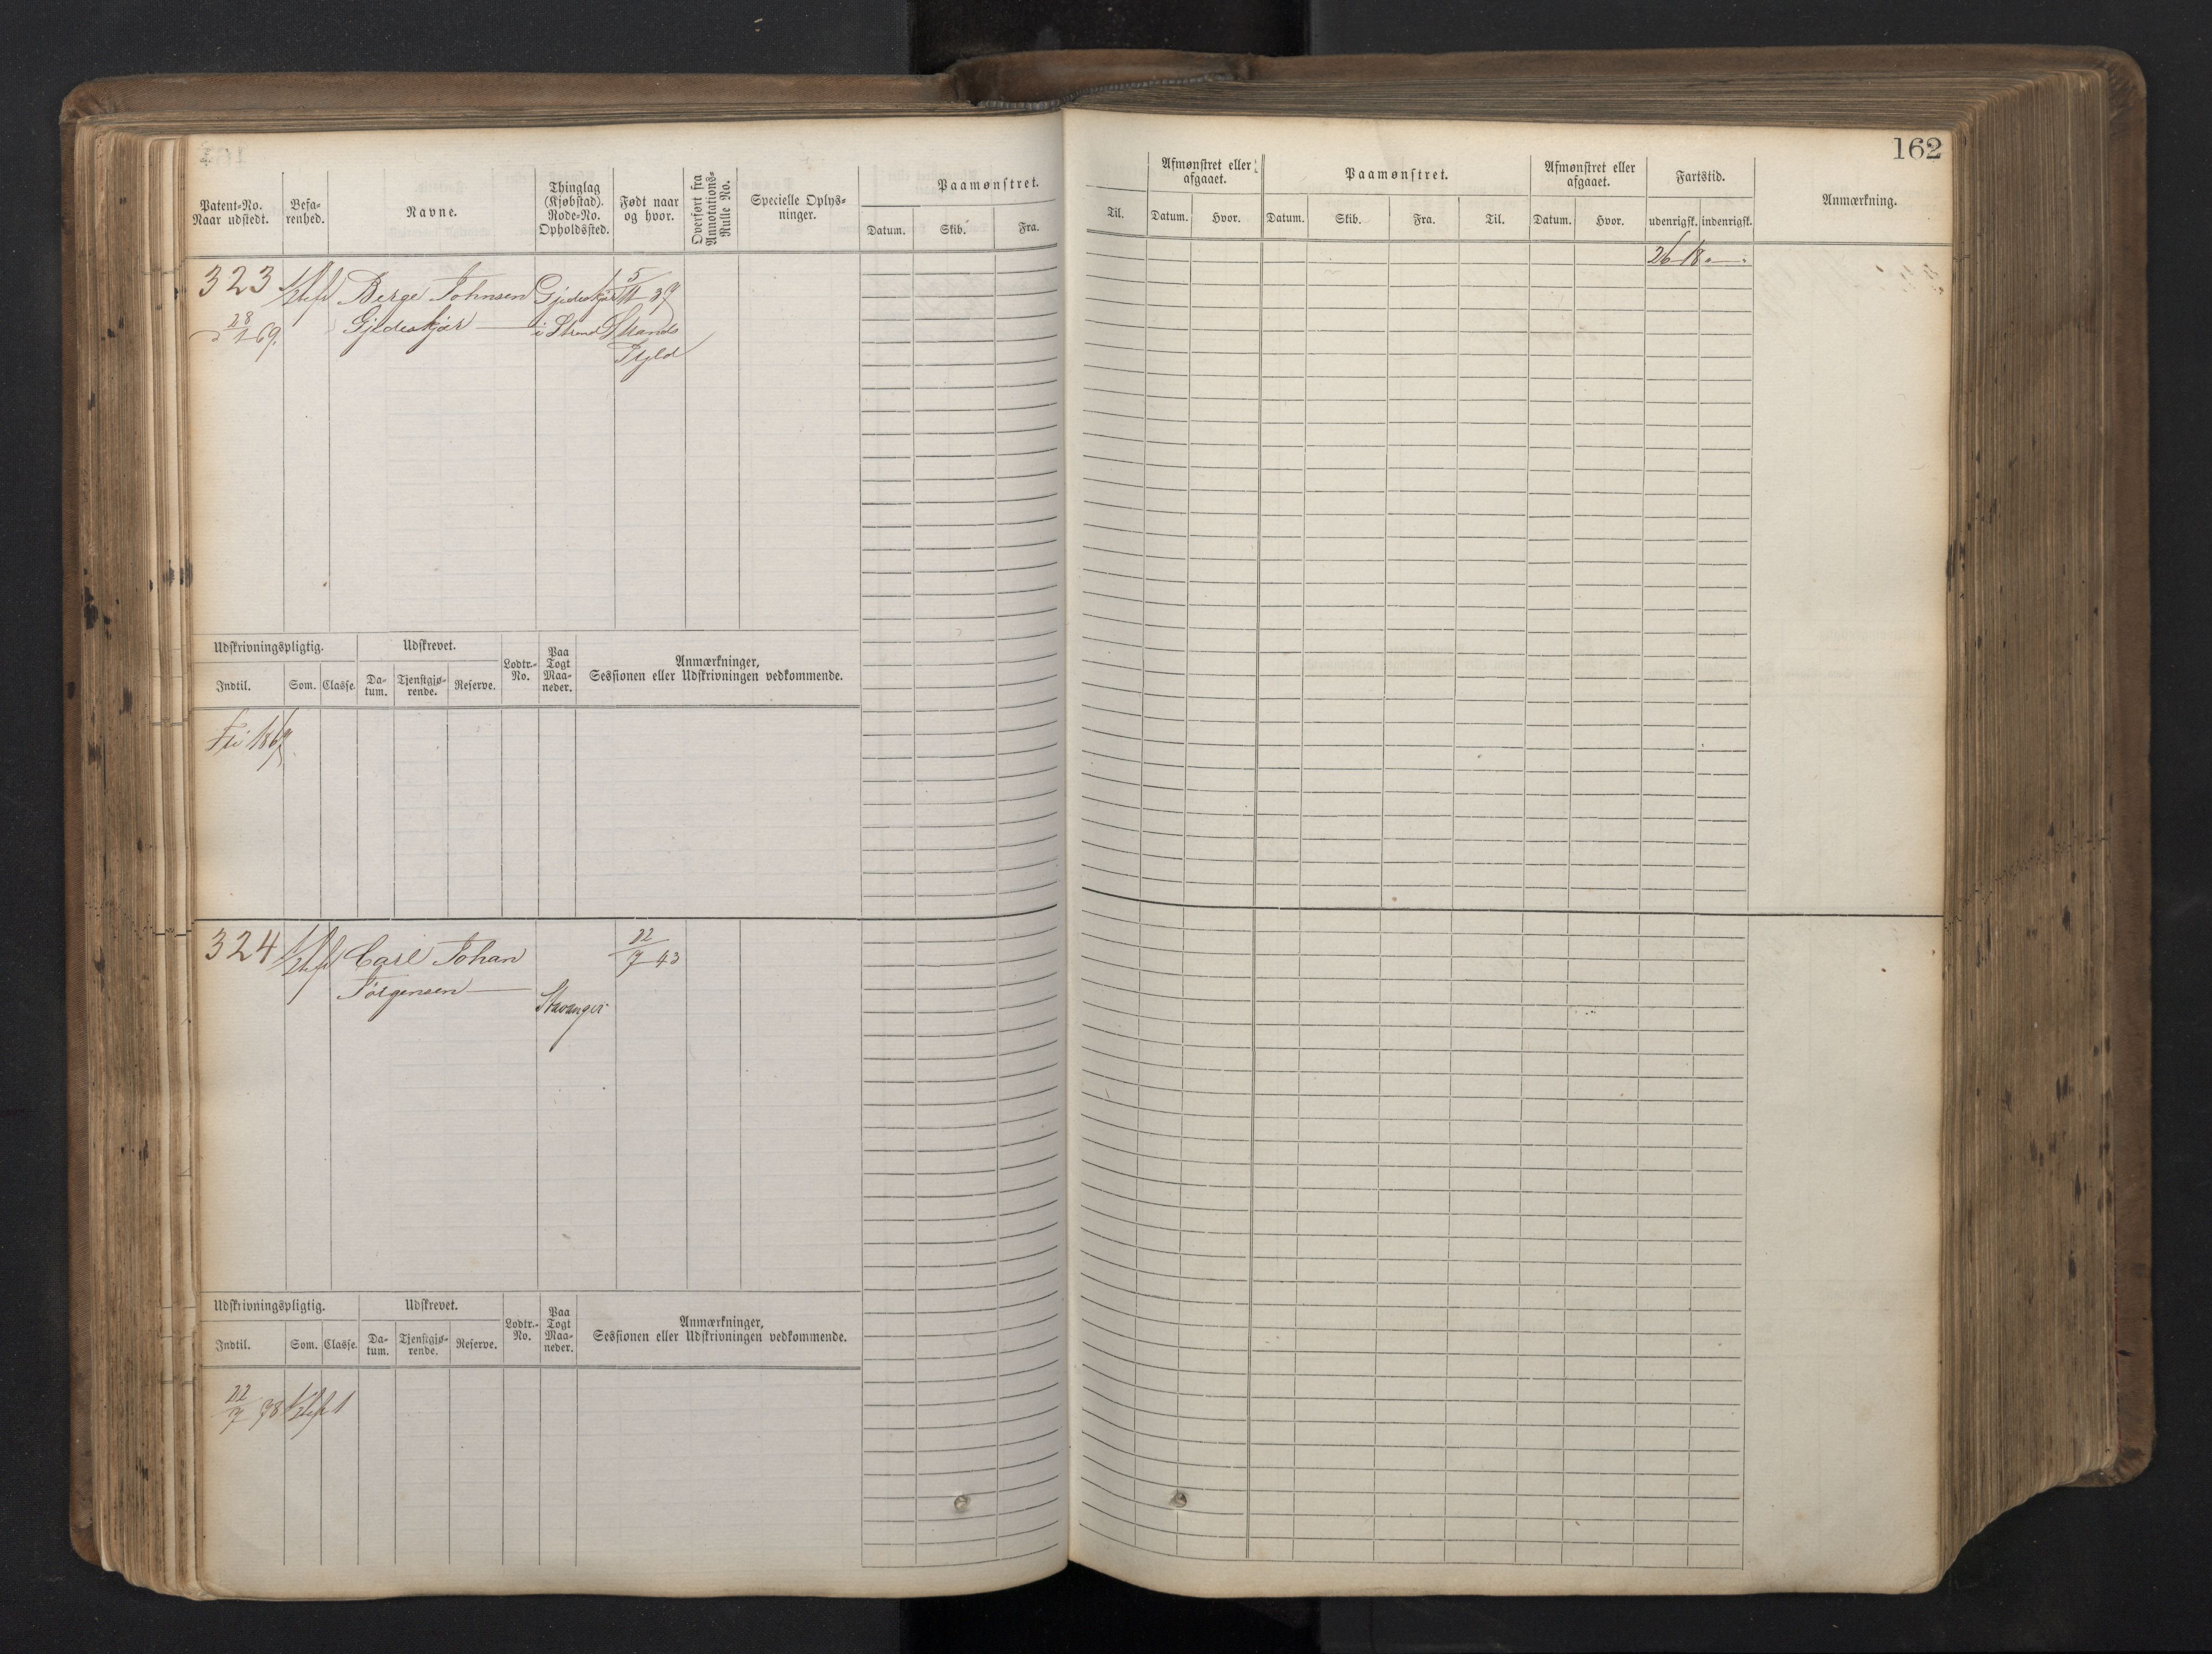 162
Patent-No.
Naar udstedt.
Befa-
renhed.
Navne.
Thinglag
(Kjøbstad).
Rode-No.
Opholdssted.
Født naar
og hvor.
Overført fra
Annotations-
Rulle No.
Specielle Oplys-
ninger.
Paamønstret.
Datum. Skib. Fra.
Til.
Afmønstret eller
afgaaet.
Datum. Hvor.
Paamønstret.
Datum. Skib. Fra. Til.
Afmønstret eller
afgaaet.
Datum. Hvor.
Fartstid.
udenrigsk. indenrigsk.
Anmærkning.
323 Berge Johnsen 5/11 39
28/1 69. i Strand Strands
Pgjld
Udskrivningspligtig.
Indtil. Som. Classe.
Udskrevet.
Da-
tum.
Tjenstgjø-
rende.
Reserve.
Lodtr.-
No.
Paa
Togt
Maa-
neder.
Anmærkninger,
Sessionen eller Udskrivningen vedkommende.
Fri 1869
324 Carl Johan 22/7 43
Jørgensen
Stavanger
Udskrivningspligtig.
Indtil. Som. Classe.
Udskrevet.
Da-
tum.
Tjenstgjø-
rende.
Reserve.
Lodtr.-
No.
Paa
Togt
Maa-
neder.
Anmærkninger,
Sessionen eller Udskrivningen vedkommende.
22/7 78 1